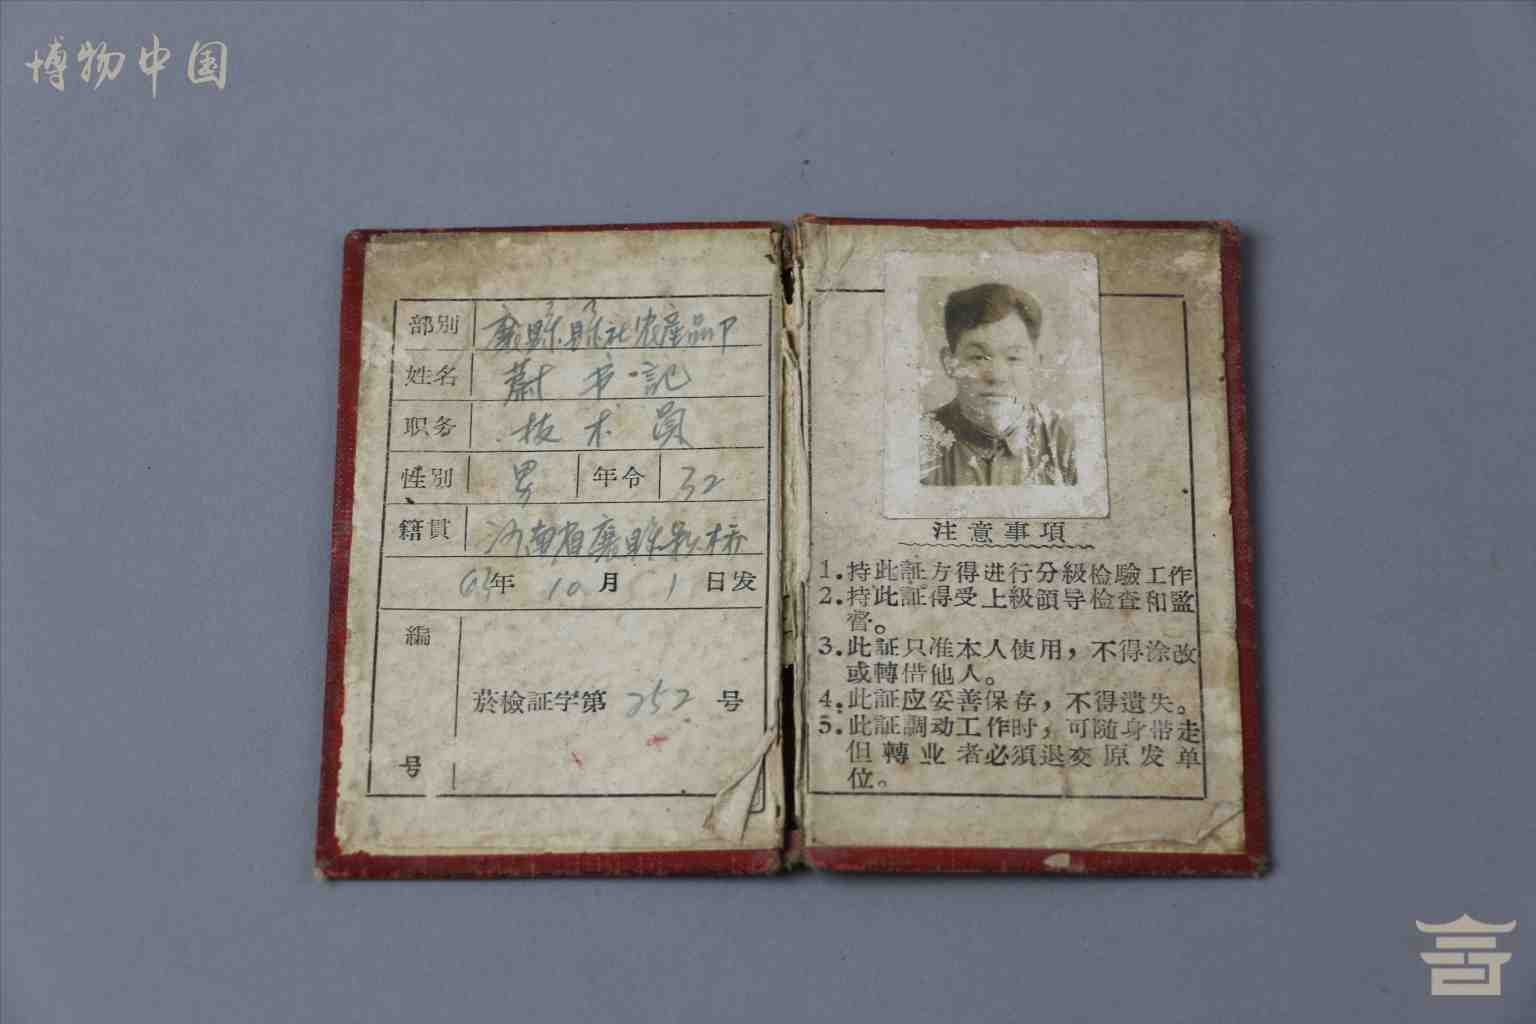 博物中国
部别 襄縣縣社农產品P
姓名 蔚书記
职务 技术员
性别 男 年令 32
籍貫 河南省襄縣
63年 10月 1日发
編号
菸檢証字第 252 号
注意事項
1.持此証方得进行分級检驗工作
2.持此証得受上級領导检查和監
督。
3.此証只准本人使用，不得涂改
或轉借他人。
4.此証应妥善保存，不得遺失。
5.此証調动工作时，可随身带走
但轉业者必須退交原发单
位。